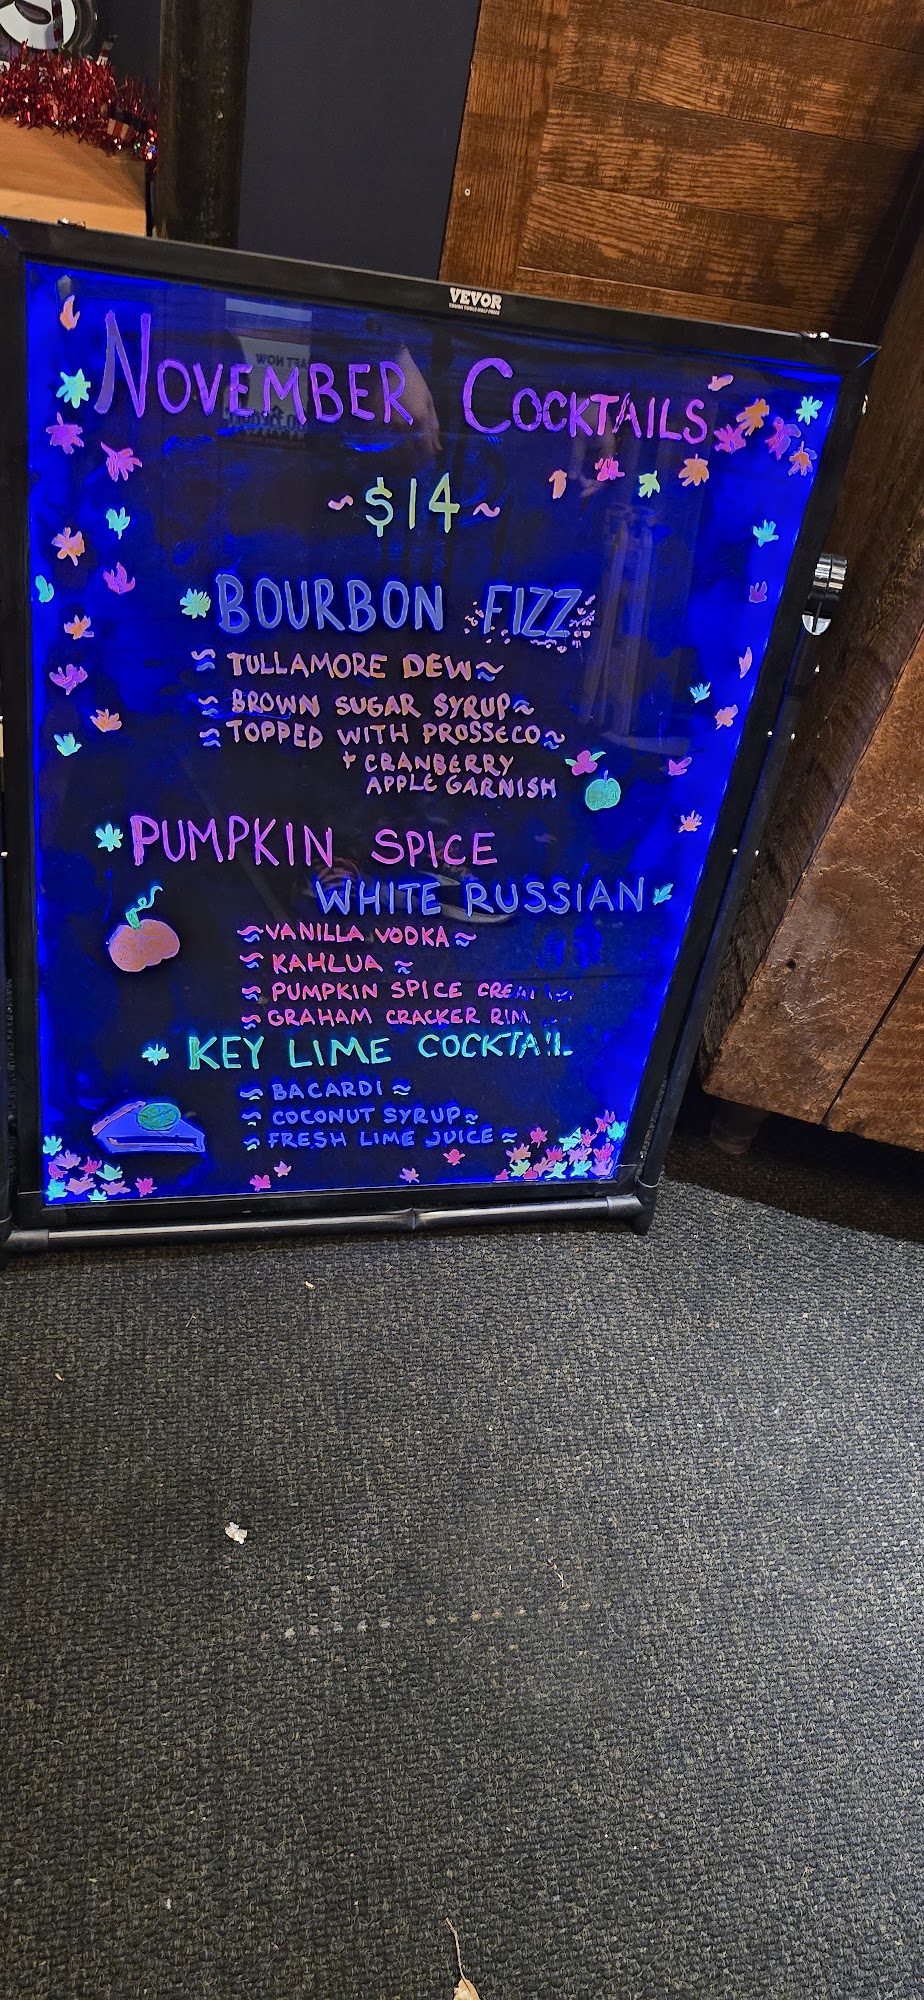 VEVOR
TOUGH TOOLS HALF PRICE
NOVEMBER COCKTAILS
~$14~
BOURBON FIZZ
≈ TULLAMORE DEW ≈
≈ BROWN SUGAR SYRUP ≈
≈ TOPPED WITH PROSSECO ≈
+ CRANBERRY
APPLE GARNISH
PUMPKIN SPICE
WHITE RUSSIAN
≈ VANILLA VODKA ≈
≈ KAHLUA ≈
≈ PUMPKIN SPICE
≈ GRAHAM CRACKER RIM
KEY LIME COCKTAIL
≈ BACARDI ≈
≈ COCONUT SYRUP ≈
≈ FRESH LIME JUICE ≈